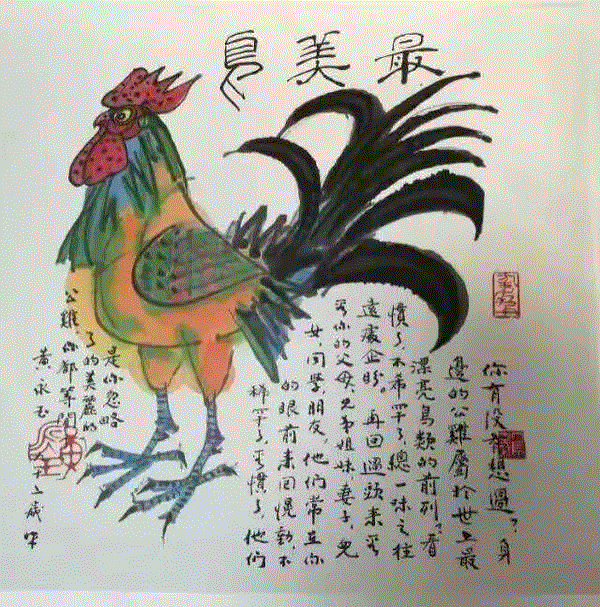 最美鳥
你有没有想過？身
邊的公雞屬於世上最
漂亮鳥類的前列？看
慣了不希罕了，總一味之往
遠處企盼。再回過頭来看
看你的父母，兄弟姐妹，妻子，兒
女同學，朋友，他們常在你
的眼前来回晃動，不
稀罕了，看慣了，他們
是你忽略
了的美麗的
公雞，你都等閒
黄永玉 十二歲作